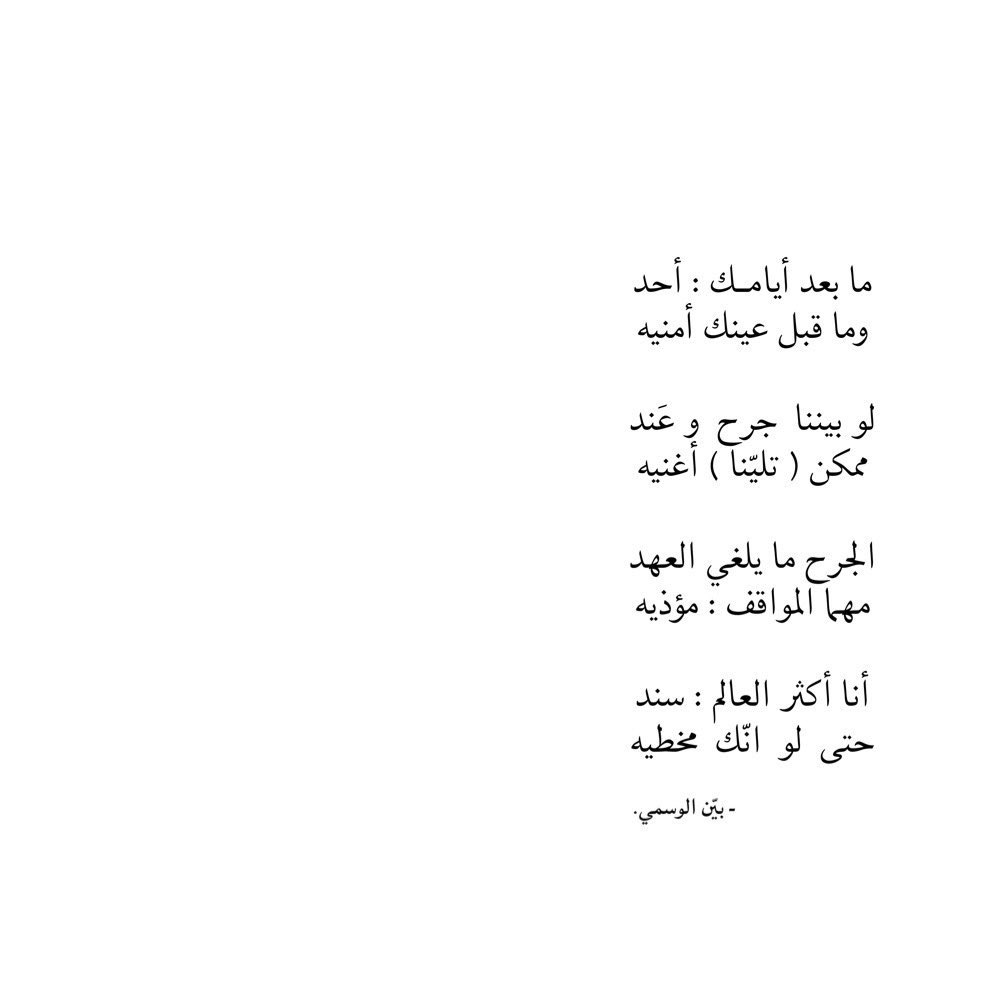 ما بعد أيامـك : أحد
وما قبل عينك أمنيه
لو بيننا جرح و عَند
ممكن ( تليّنا ) أغنيه
الجرح ما يلغي العهد
مهما المواقف : مؤذيه
أنا أكثر العالم : سند
حتى لو انّك مخطيه
- بيّن الوسمي.